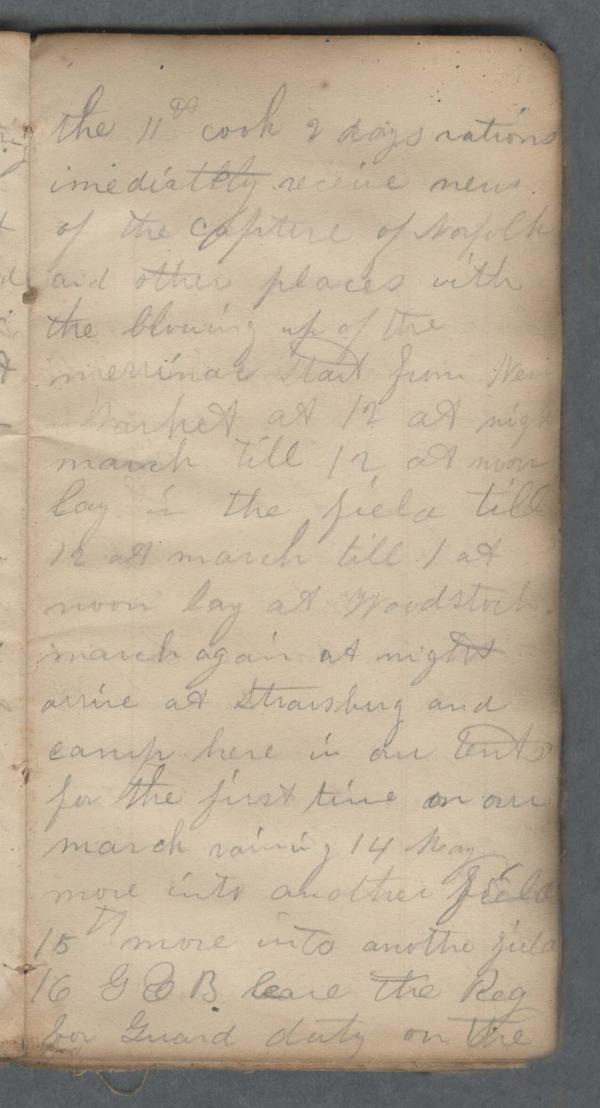 the 11th cook 2 days rations
imediattly receive news
of the capture of Norfolk
and other places with
the blowing up of the
merrimac Start from New
Market at 12 at nigh
march till 12 at noon
lay in the field till
12 at march till 1 at
noon lay at Woodstock.
march again at night
arrive at Strausburg and
camp here in our tents
for the first time on our
march raining 14 May
move into another field
15th move into anothe field
16 G & B leave the Reg
for Guard duty on the